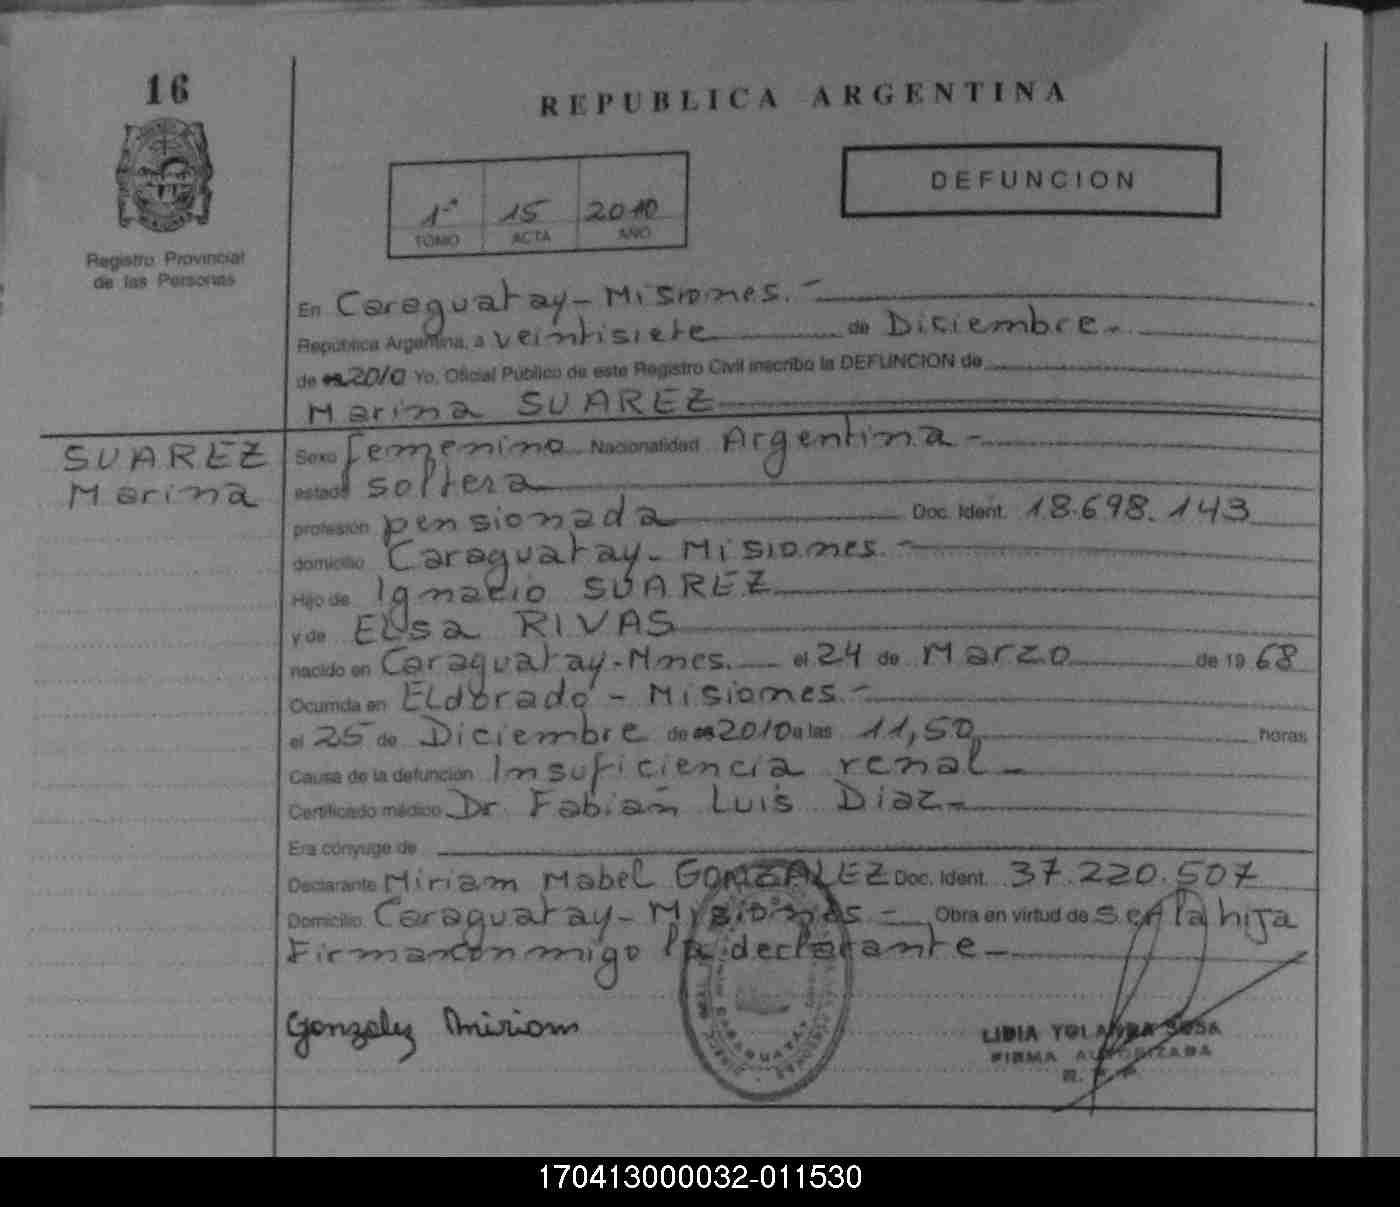 16
REPUBLICA ARGENTINA
1ª 15 2010
TOMO ACTA AÑO
DEFUNCION
Registro Provincial
de las Personas
En Caraguatay - Misiones. -
República Argentina, a veintisiete de Diciembre -
de 2010 Yo, Oficial Público de este Registro Civil inscribo la DEFUNCION de
Marina SUAREZ
SUAREZ
Marina
Sexo femenino Nacionalidad Argentina -
estado soltera
profesión pensionada Doc. Ident. 18.698.143
domicilio Caraguatay - Misiones. -
Hijo de Ignacio SUAREZ
y de ELisa RIVAS
nacido en Caraguatay - Mnes. el 24 de Marzo de 19 68
Ocurrida en ELdorado - Misiones. -
el 25 de Diciembre de 2010 a las 11,50 horas
Causa de la defunción Insuficiencia renal -
Certificado médico Dr. Fabian Luis Diaz -
Era cónyuge de
Declarante Miriam Mabel GONZALEZ Doc. Ident. 37.220.507
Domicilio Caraguatay - Misiones - Obra en virtud de ser la hija
Firman conmigo la declarante -
Gonzalez Miriam
LIDIA YOLANDA SOSA
FIRMA AUTORIZADA
170413000032-011530